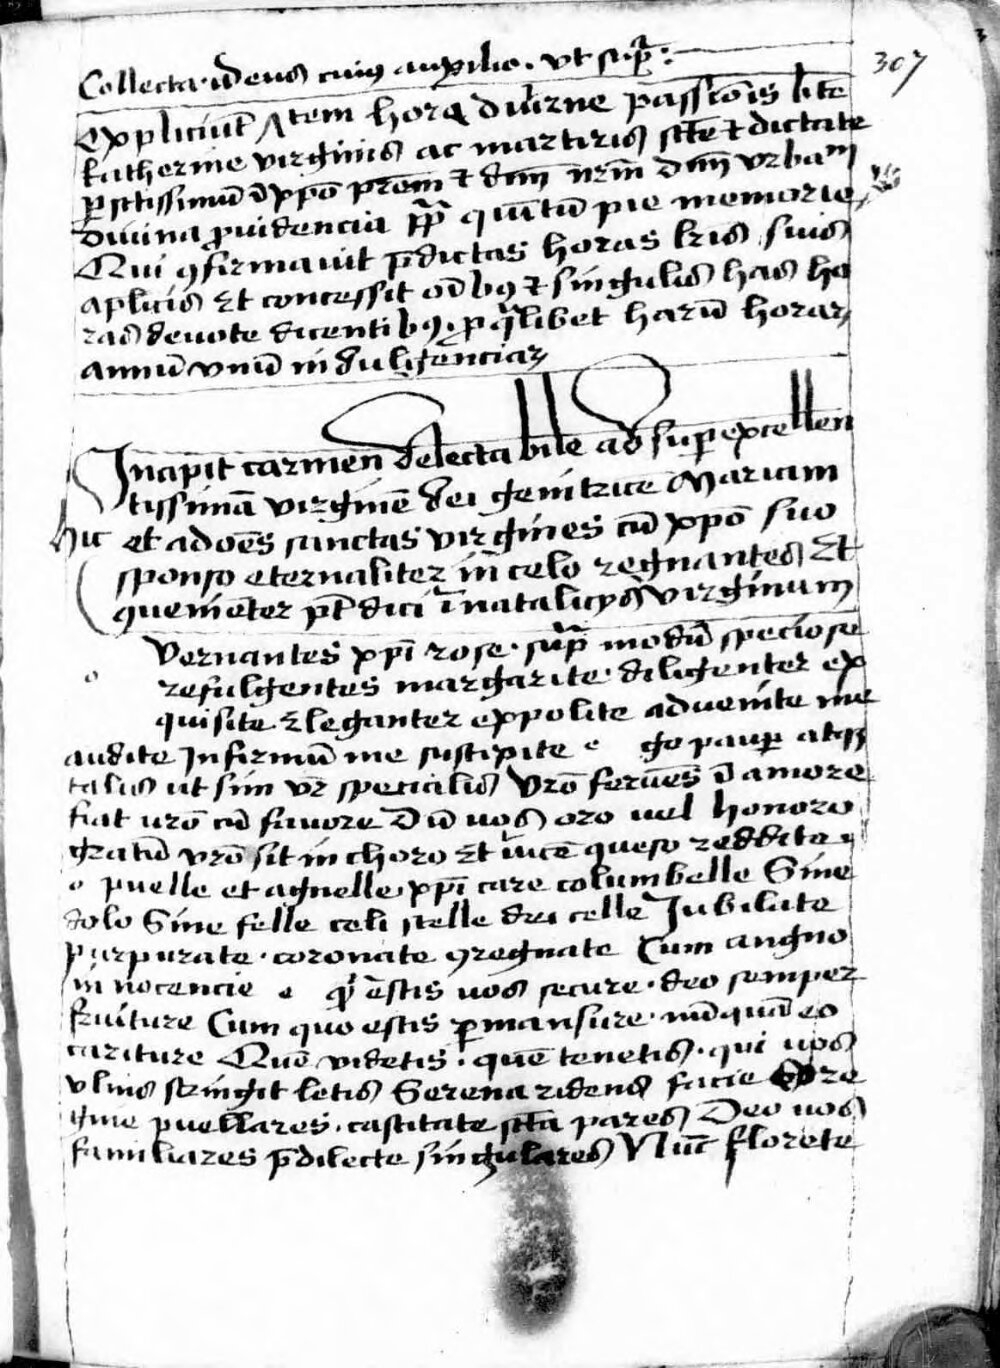 307
Collecta. deus cuius auxilio. vt supra:
Expliciunt Item hore diurne passionis bte
katherine virginis ac martiris scte et dictate
per sctissimum i xpo prem et dnm nrm dnm vrbanum
diuina prouidencia pp quintum pie memorie
Qui confirmauit predictas horas lris suis
aplicis Et concessit omnibus et singulis has ho
ras deuote dicentibus. pro qualibet harum horarum
annum vnum indulgenciarum
Incipit carmen delectabile ad superexcellen
tissimam virginem dei genitricem Mariam
hic et ad oes sanctas virgines cum xpo suo
sponso eternaliter in celo regnantes Et
quenienter pt dici in natalicijs virginum
Vernantes xpi rose. supra modum speciose
o refulgentes margarite. diligenter ex
quisite. Eleganter expolite aduenite me
audite Infirmum me suscipite e go pauper atque
talis ut sim vr specialis Vro feruens i amore
fiat uro cum fauore Dum uos oro uel honoro
gratum vro sit in choro Et vicem queso reddite
o puelle et agnelle. xpi care columbelle Sine
dolo Sine felle celi stelle dei celle Jubilate
purpurate. coronate congregnate Cum angno
innocencie e quod estis uos secure. deo semper
fruiture Cum quo estis permansure. nunquam eo
cariture Quem videtis. quem tenetis. qui uos
vlnis stringit letis Serena ridens facie
puellares. castitate scta pares Deo uos
familiares predilecte singulares Nunc florete